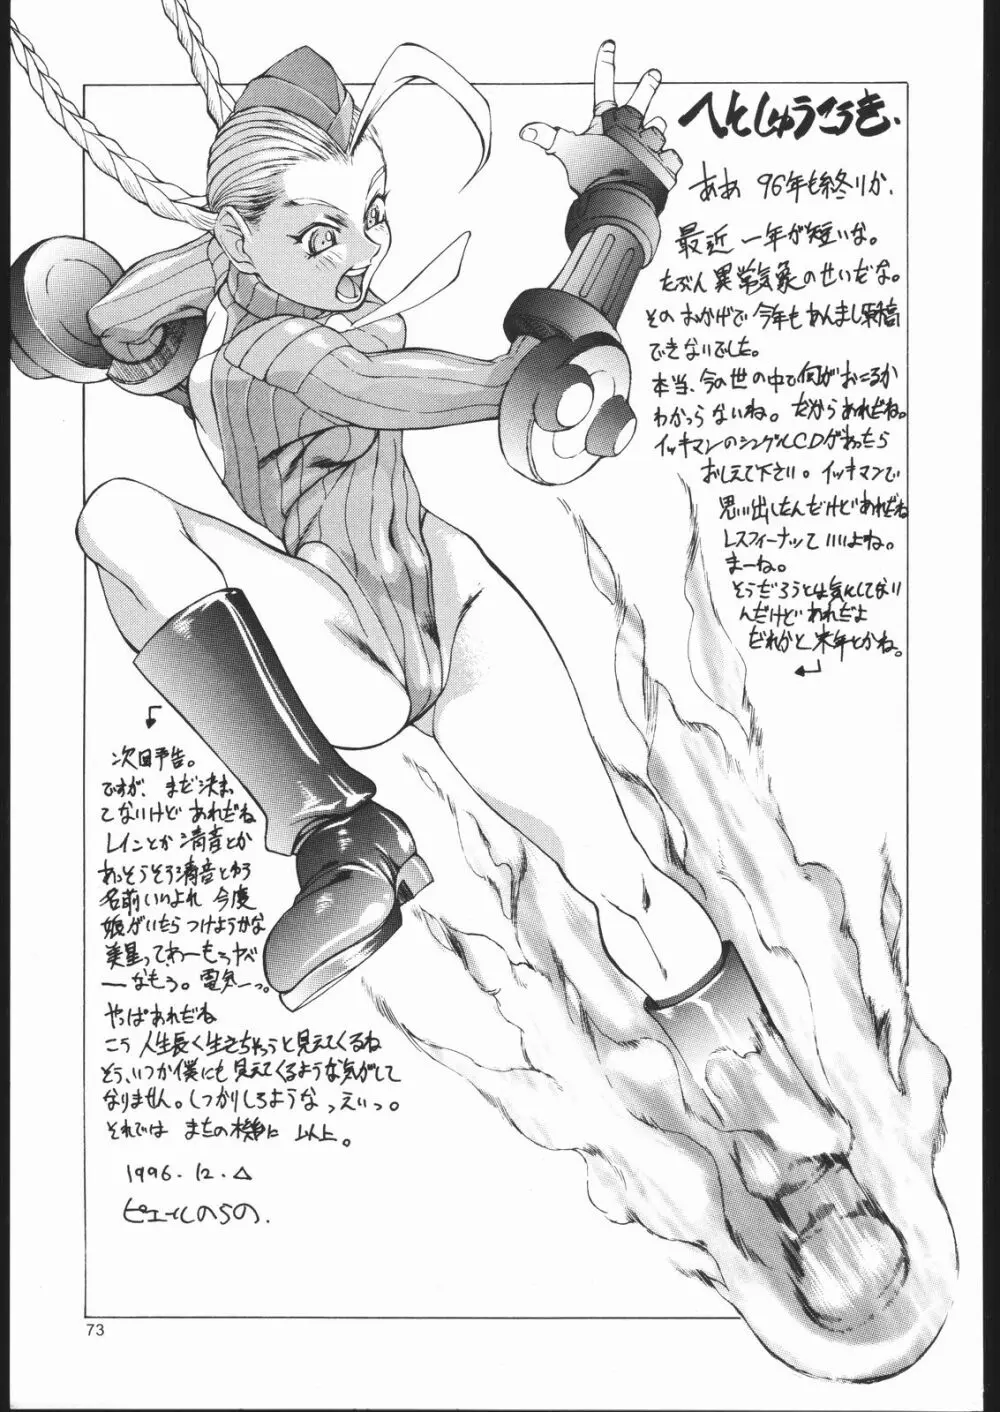 へんしゅうこうき、
ああ 96年も終りか、
最近 一年が短いな。
たぶん 異常気象のせいだな。
そのおかげで今年もあんまし原稿
できないでした。
本当、今の世の中で何がおこるか
わかっらないね。だからあれだね。
イッキマンのシングルCDがあったら
おしえて下さい。イッキマンで
思い出したんだけどあれだね
レスフィーナッていいよね。
まーね。
そうだろうとは気にしてない
んだけどあれだよ
だれかと来年とかね。
次回予告。
ですが、まだ決まっ
てないけどあれだね
レインとか清音とか
あっそうそう清音とゆう
名前いいよね 今度
娘がいたらつけようかな
美星ってわーもうヤベ
ーなもう。電気ーっ。
やっぱあれだね
こう人生長く生きちゃうと見えてくるね
そう、いつか僕にも見えてくるような気がして
なりません。しっかりしろような っえいっ。
それでは またの機会に 以上。
1996.12.△
ピエールしのらの.
73